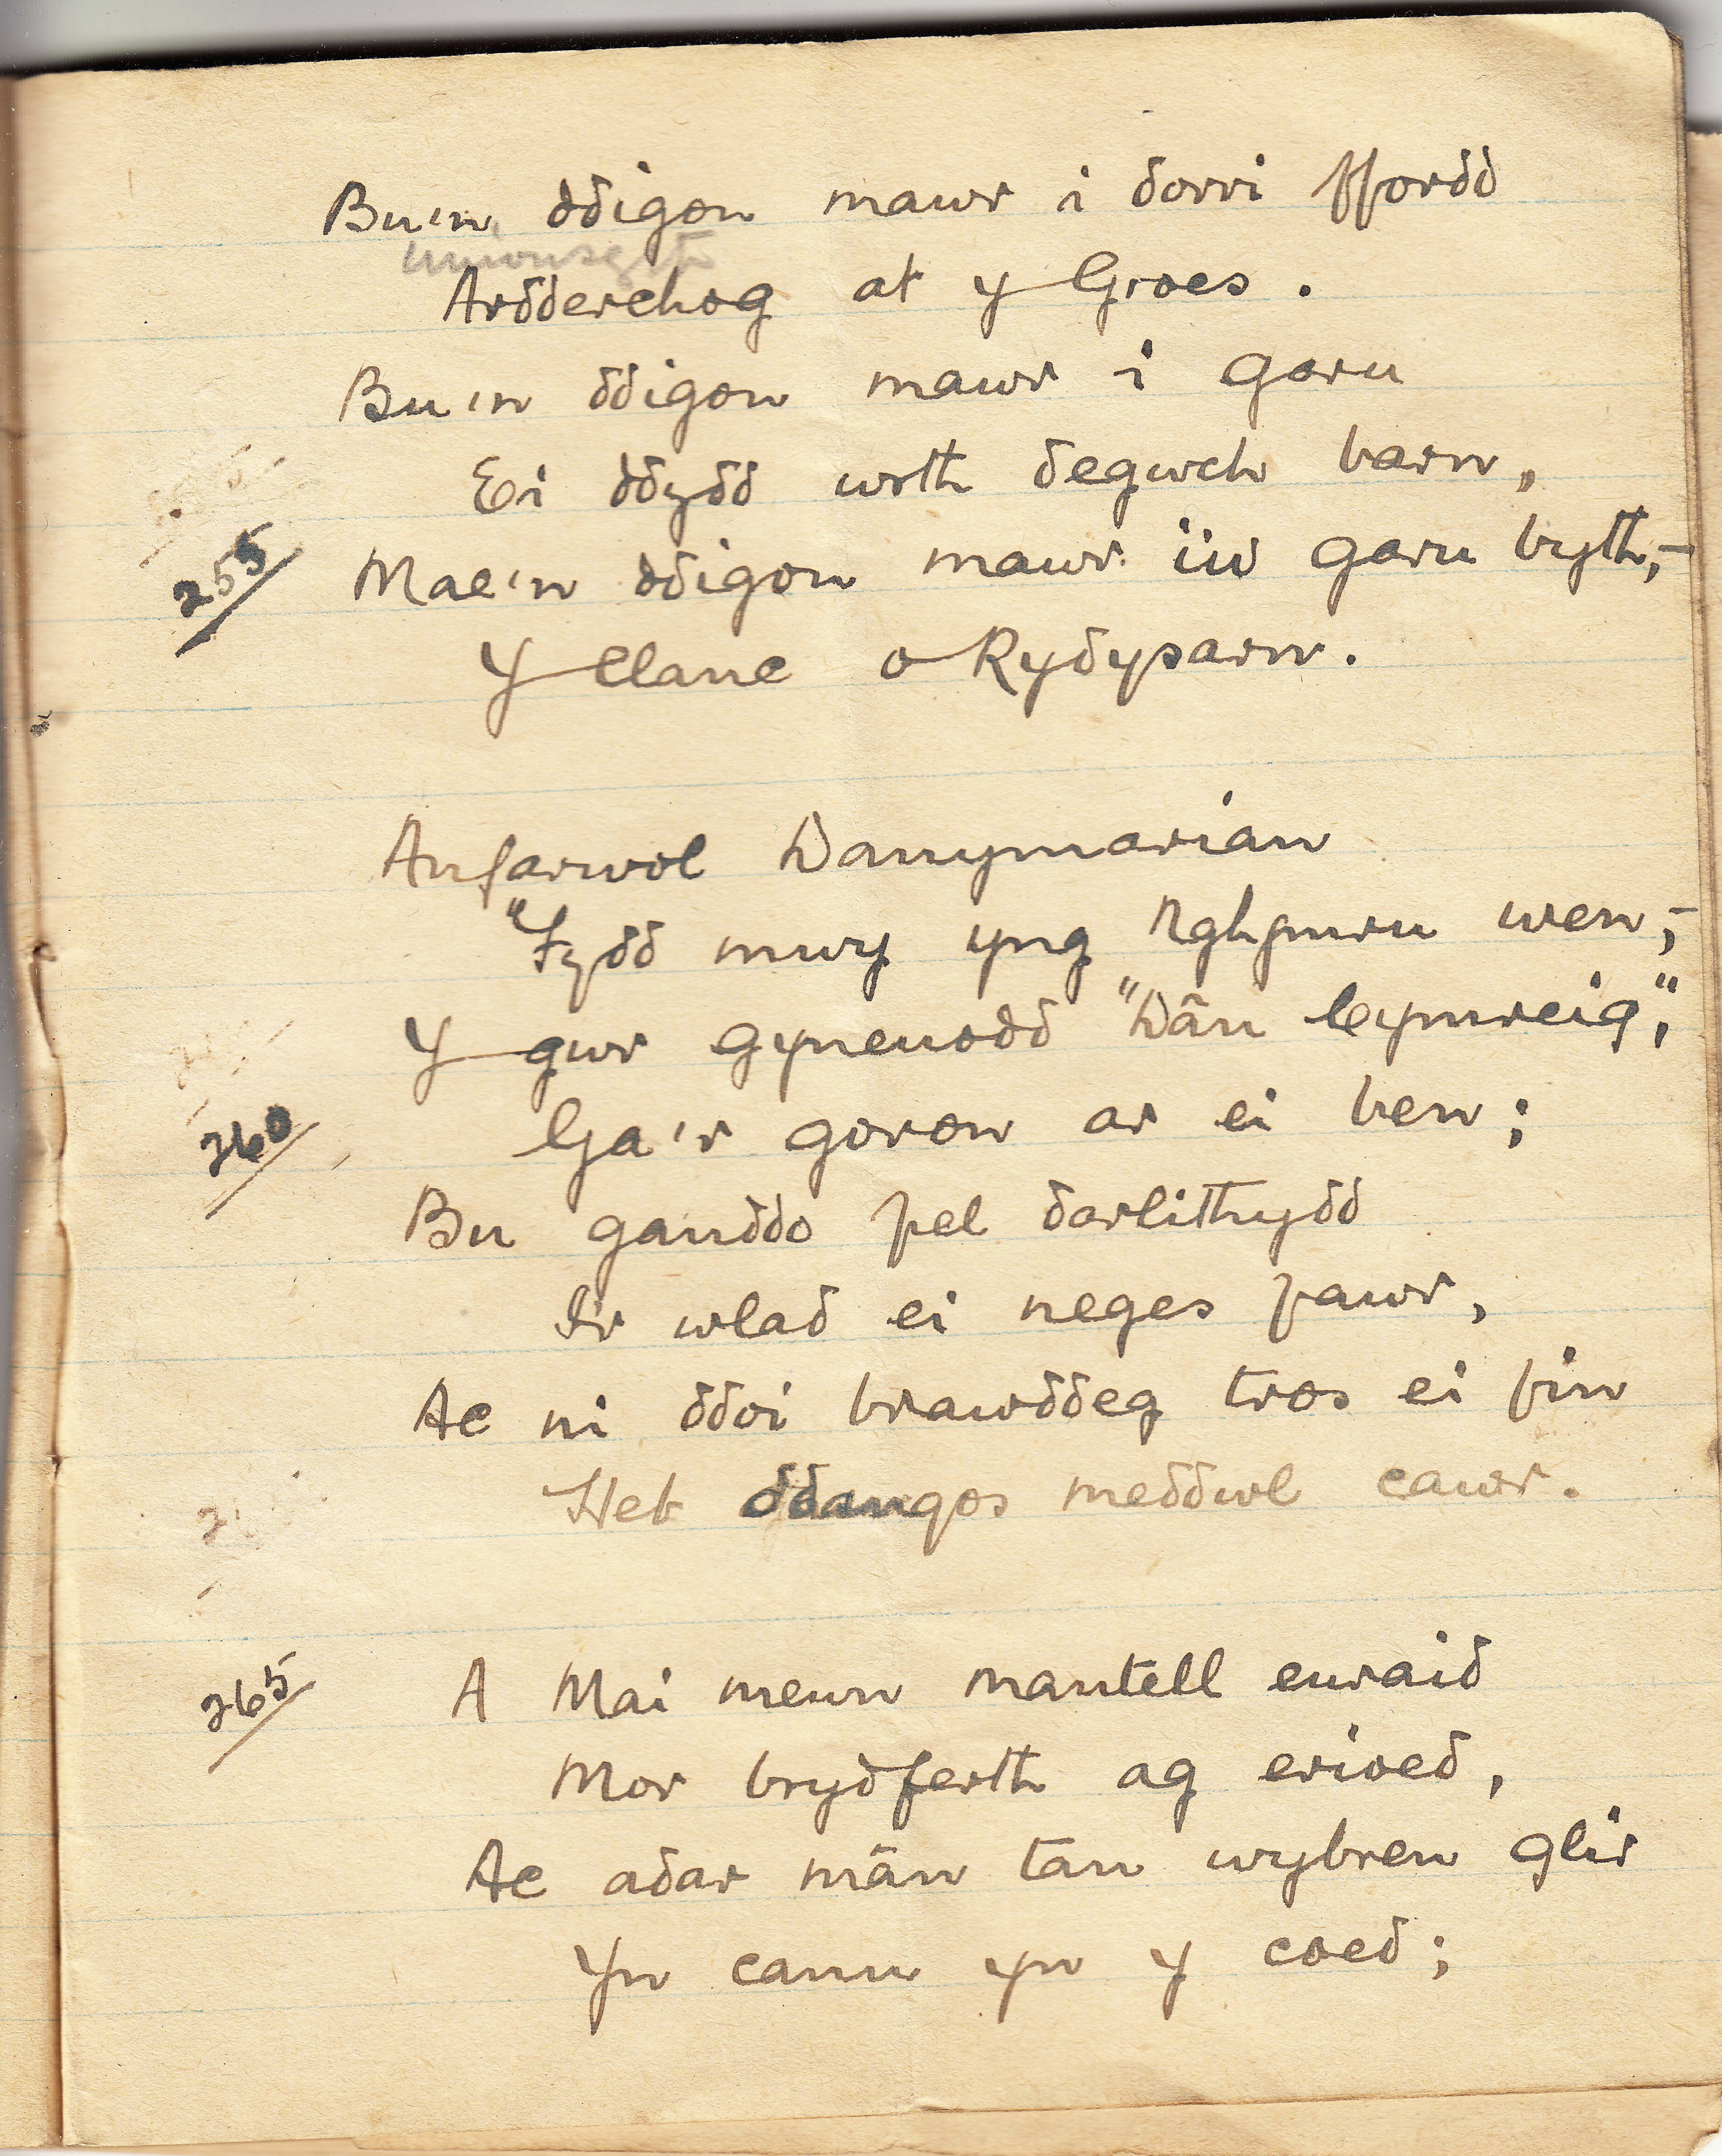 Bu'n ddigon mawr i dorri ffordd
Ardderchog at y Groes.
Bu'n ddigon mawr i garu
Ei ddydd wrth degwch barn,
255 Mae'n ddigon mawr i'w garu byth,-
Y llanc o Rydysarn.
Anfarwol Danymarian
"Fydd mwy yng Nghymru wen,-
Y gwr gynenodd "Dân Cymreig",
260 Ga'r goron ar ei ben;
Bu ganddo fel darlithydd
I'r wlad ei neges fawr,
Ac ni ddoi brawddeg tros ei fin
Heb ddangos meddwl cawr.
265 A Mai mewn mantell euraid
Mor brydferth ag erioed,
Ac adar mân tan wybren glir
Yn canu yn y coed;